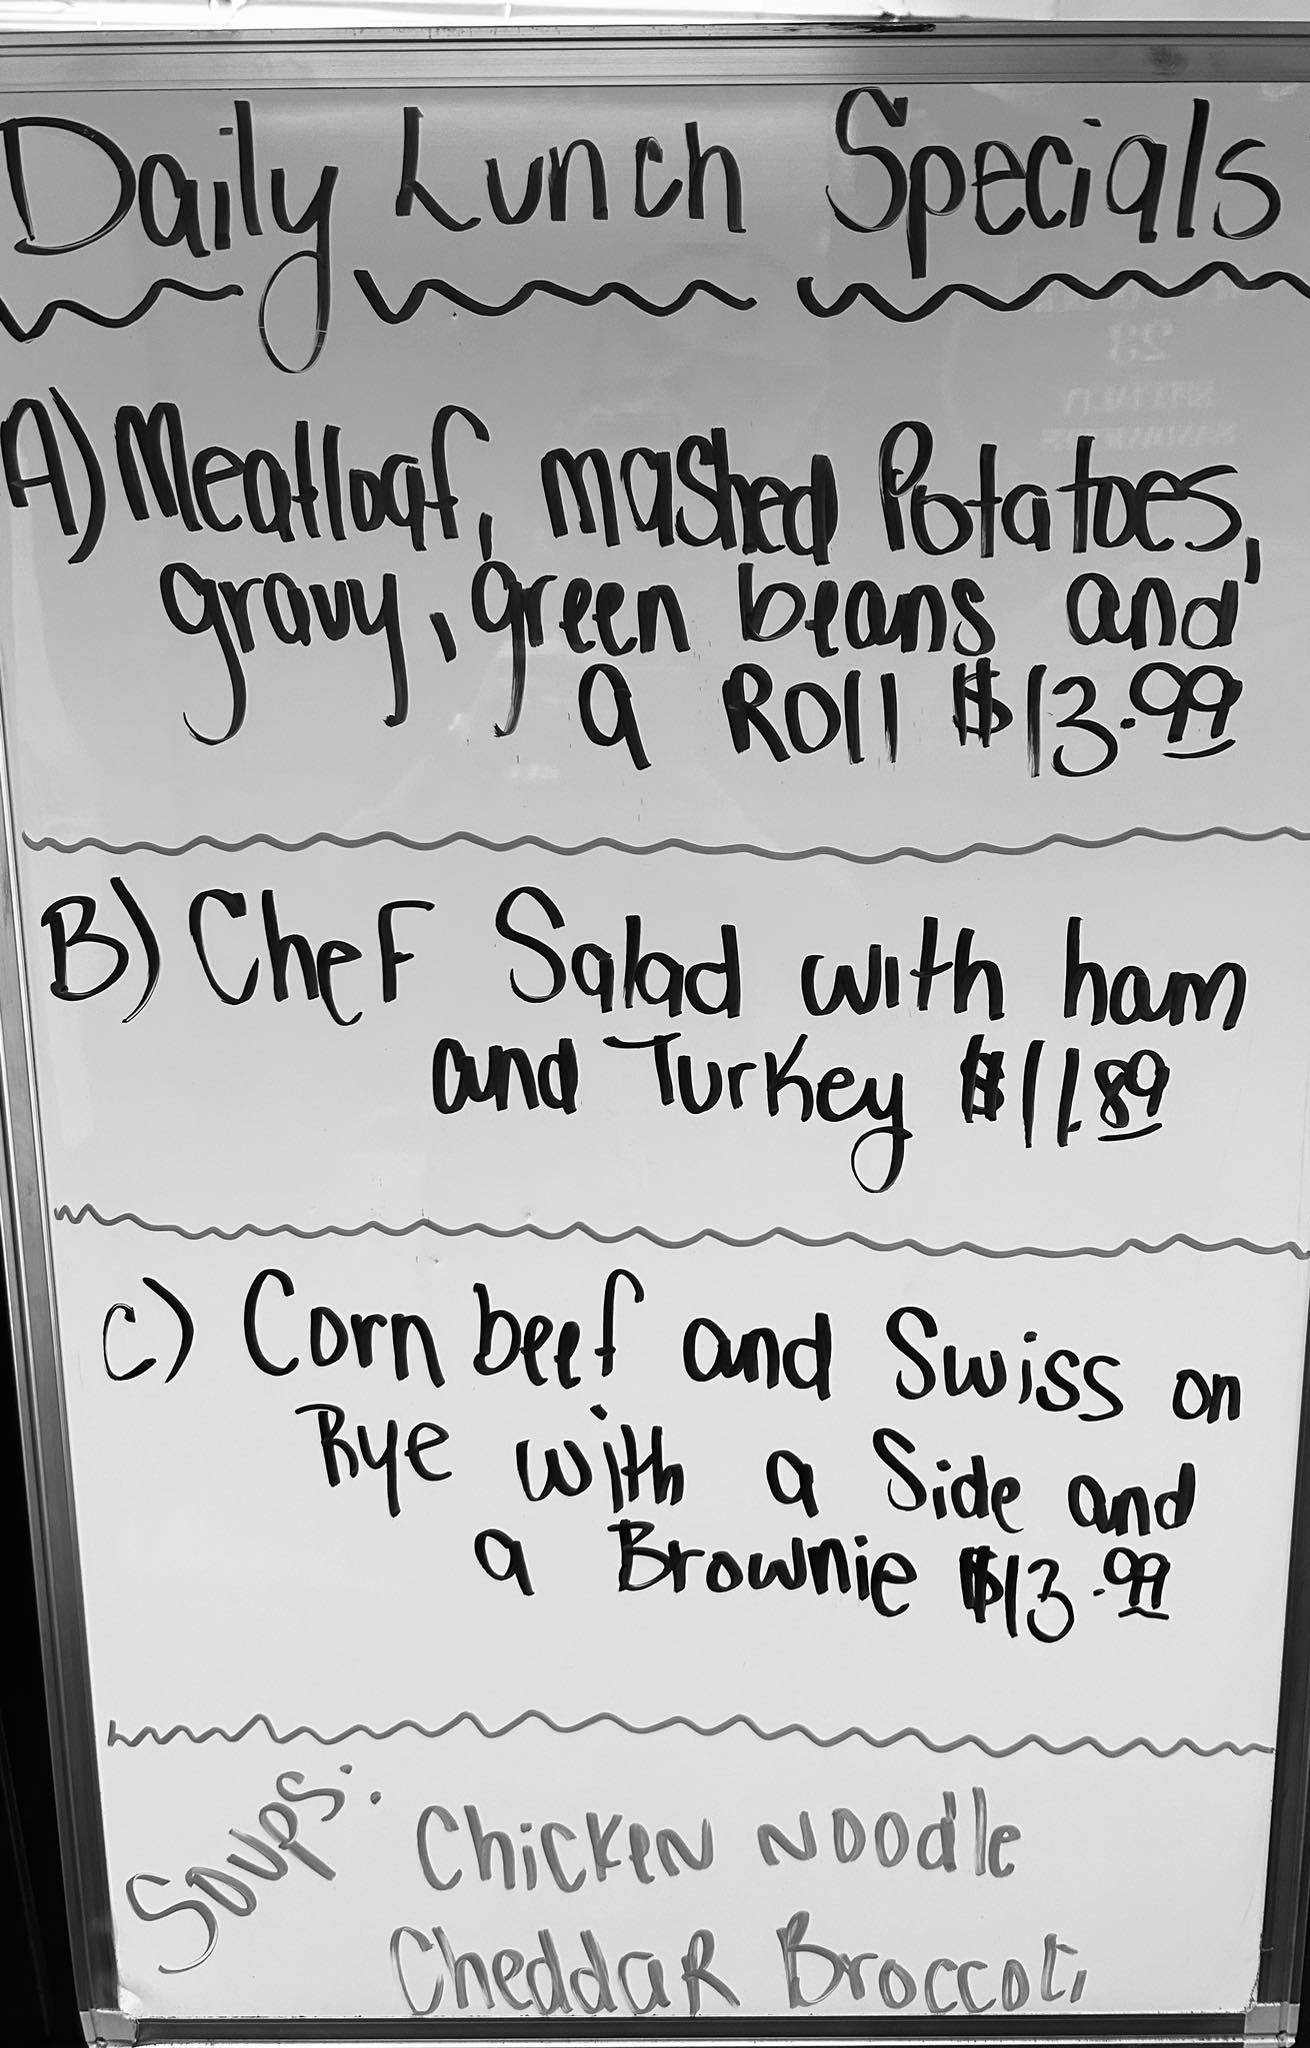 Daily Lunch Specials
A) Meatloaf, mashed Potatoes,
gravy, green beans and
a Roll $13.99
B) Chef Salad with ham
and Turkey $11.89
C) Corn beef and Swiss on
Rye with a Side and
a Brownie $13.99
Soups: Chicken Noodle
Cheddar Broccoli